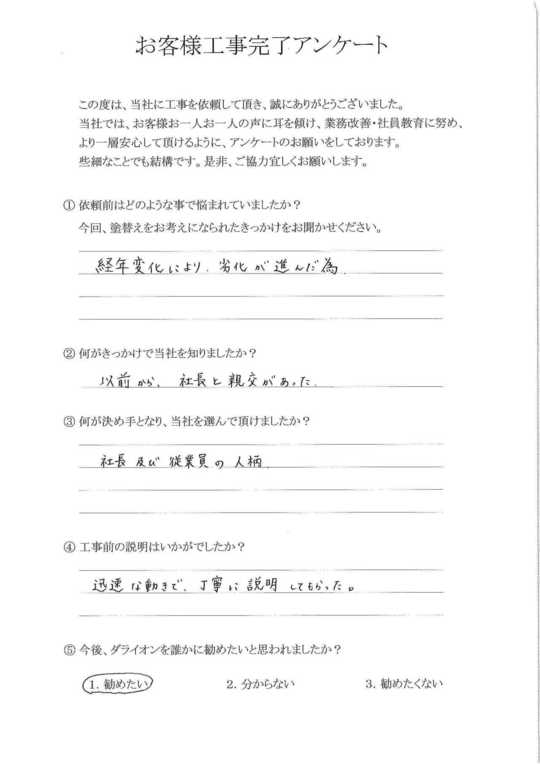 お客様工事完了アンケート
この度は、当社に工事を依頼して頂き、誠にありがとうございました。
当社では、お客様お一人お一人の声に耳を傾け、業務改善・社員教育に努め、
より一層安心して頂けるように、アンケートのお願いをしております。
些細なことでも結構です。是非、ご協力宜しくお願いします。
① 依頼前はどのような事で悩まれていましたか？
今回、塗替えをお考えになられたきっかけをお聞かせください。
経年変化により、劣化が進んだ為
② 何がきっかけで当社を知りましたか？
以前から、社長と親交があった.
③ 何が決め手となり、当社を選んで頂けましたか？
社長及び従業員の人柄
④ 工事前の説明はいかがでしたか？
迅速な動きで、丁寧に説明してもらった。
⑤ 今後、ダライオンを誰かに勧めたいと思われましたか？
1. 勧めたい 2. 分からない 3. 勧めたくない